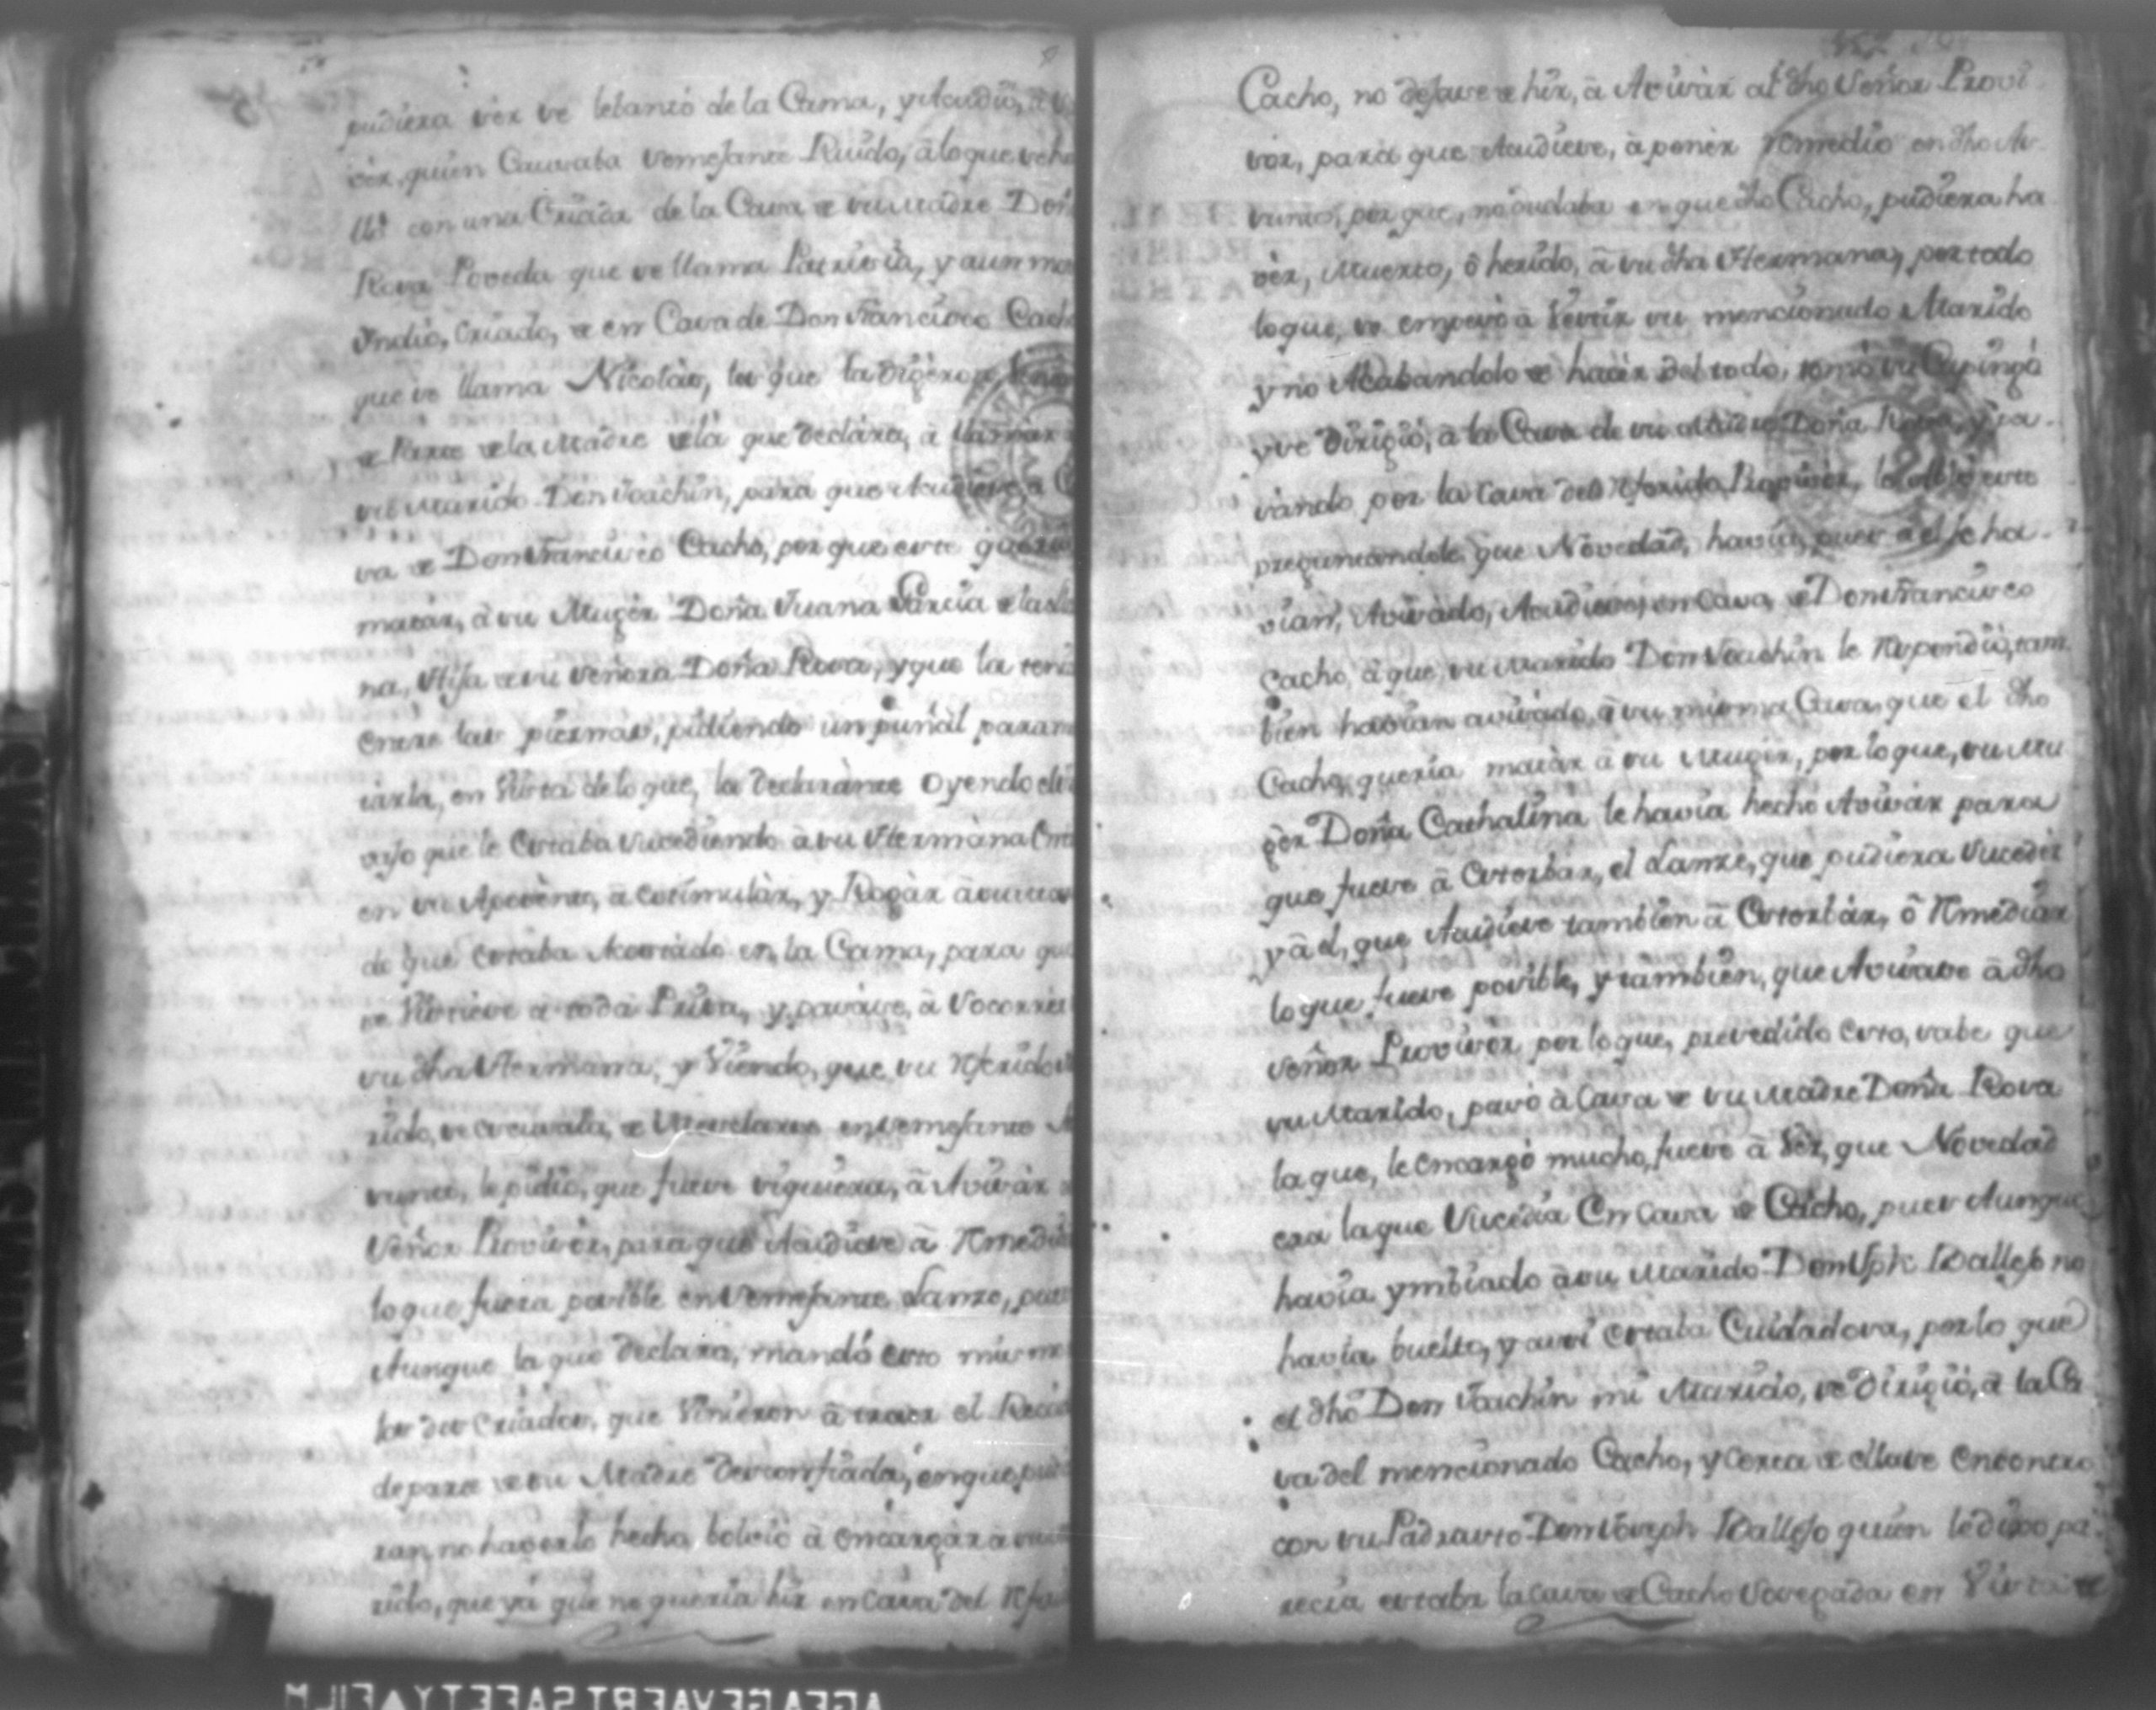 pudiera ser se lebantó de la Cama, y Acudió, à
cer, quien Causaba semejante Ruido, à lo que se ha
lló con una Criada de la Casa de su Madre Doña
Rosa Poveda que se llama Patricia, y aun mas
Yndio, Criado, de en Casa de Don Francisco Cacho
que se llama Nicolàs, los que la digeron,
de Parte de la Madre de la que declara, à llamar
su Marido Don Joachin, para que Acudiese à
sa de Don Francisco Cacho, por que este queria
matar, à su Muger Doña Juana Garcia
na, Hija de su Señora Doña Rosa, y que la tenia
entre las piernas, pidiendo un puñàl para ma
tarla, en Vista de lo que, la declarànte Oyendo el
ajo que le Estaba sucediendo à su Hermàna Entrò
en su Aposènto, à estimulàr, y Rogàr à su mari
do que Estaba Acostàdo en la Cama, para que
se Vistiese a toda Prisa, y pasàse, à Socorrer
su dha Hermana, y Viendo, que su Referido Ma
rido, se escusaba, de Mesclarse en semejante A
sunto, le pidio, que fuese siquiera, à Avisàr
Señor Provisòr, para que Acudiese à Remediàr
lo que fuera posible en Semejante Lanze, pues
Aunque la que declara, mandó esto mismo
los dos Criados, que Vinieron à traer el Recado
de parte de su Madre desconfiada, en que pudie
ran, no haverlo hecho, bolvió à encargàr à su Ma
rido, que ya que no queria hir en Casa del Referido
Cacho, no dejase de hir, à Avisàr al dho Señor Provi
sor, para que Acudiese, à ponèr remedio en dho A
sunto, por que, no dudaba en que dho Cacho, pudiera ha
vèr, Muerto, ô herido, à su dha Hermana, por todo
lo que, se empesò à Vestir su mencionado Marido
y no Acabandolo de hacèr del todo, tomò su Capingò
y se dirigiò, à la Casa de su Madre Doña Rosa, y pa-
sando por la Casa del Referido Provisòr, le este
preguntandole que Novedad, havia, pues a el le ha-
vian, Avisàdo, Acudiese, en Casa, de Don Francisco
Cacho, à que, su Marido Don Joachin le Respondiò, tam
bien havian avisàdo, à su misma Casa, que el dho
Cacho, queria matàr à su Mugèr, por lo que, su Mu
gèr Doña Cathalina le havia hecho Avisàr para
que fuese à Estorbàr, el Lanze, que pudiera Sucedèr
y à el, que Acudiese tambièn à Estorbàr, ô Remediàr
lo que fuese posible, y tambièn, que Avisase à dho
Señor Provisor por lo que, presedido esto, sabe que
su Marido, pasò à Casa de su Madre Doña Rosa
la que, le encargò mucho, fuese à Vèr, que Novedad
era la que Sucedia En Casa de Cacho, pues Aunque
havia ymbiado à su Marido Don Jph Ballejo no
havia buelto, y assi Estaba Cuidadosa, por lo que
el dho Don Joachin mi Marido, se dirigiò, à la Ca
sa del mencionado Cacho, y cerca de ella se encontro
con su Padrasto Don Joseph Ballejo quien le dixo pa-
recia estaba la casa de Cacho Sosegàda en Vista de